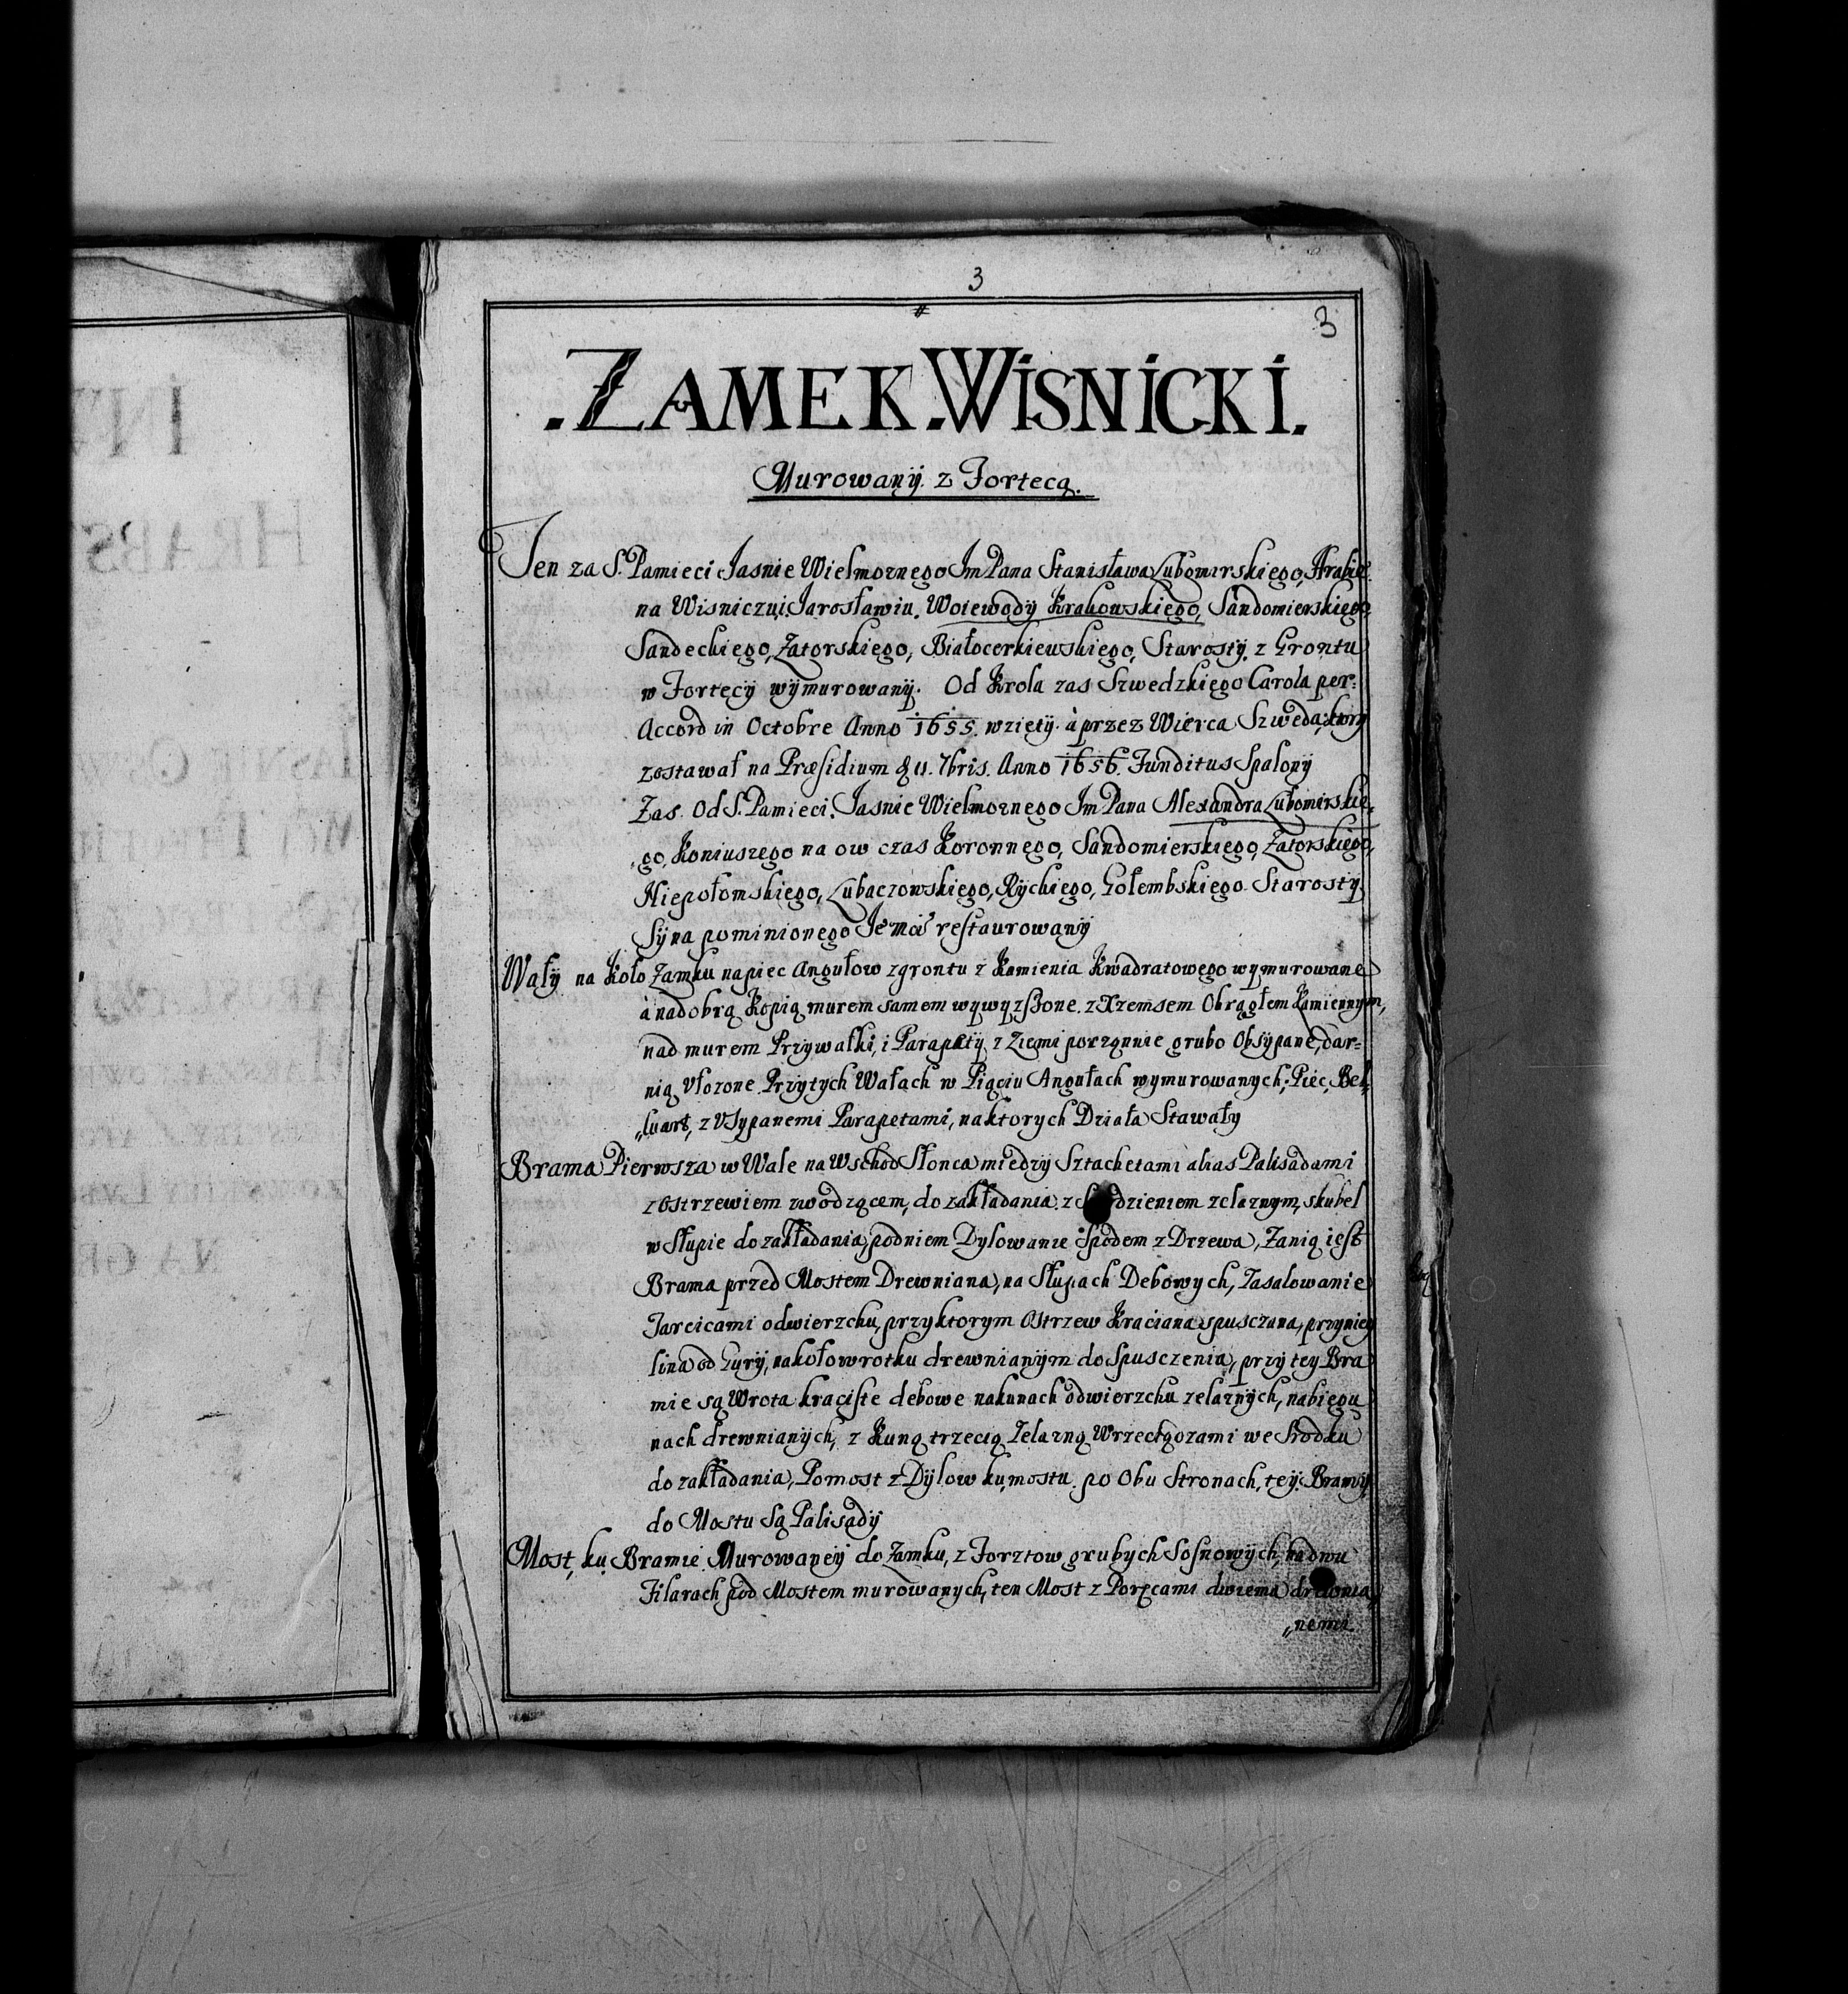 3
3
ZAMEK. WISNICKI.
Murowany. z Fortecą.
Ten za S. Pamieci Jasnie Wielmoznego Jm Pana Stanisława Lubomirskiego, Hrabie
na Wisniczu, i Jarosławiu. Woiewody Krakowskiego, Sandomierskiego
Sandeckiego, Zatorskiego, Białocerkiewskiego, Starosty. z Grontu
w Fortecy wymurowany. Od Krola zas Szwedzkiego Carola per:
Accord in Octobre Anno 1655. wziety. à przez Wierca Szweda, ktory
zostawał na Præsidium 7bris. Anno 1656. Funditus Spalony
Zas. Od S. Pamieci. Jasnie Wielmoznego Jm Pana Alexandra Lubomirskie„
„go, Koniuszego na ow czas Koronnego, Sandomierskiego, Zatorskiego,
Niepołomskiego, Lubaczowskiego, Ryckiego, Gołembskiego. Starosty
Syna pominionego restaurowany
Wały na Koło Zamku na piec Angułow z grontu z Kamienia Kwadratowego wymurowane
à nad obrą Kopią murem samem z Xzemsem Okrągłem Kamiennym,
nad murem Przywałki, i Parapety z Ziemi porządnie grubo Obsypane, dar=
nią Vłozone. Przy tych Wałach w Piąciu Angułach wymurowanych; Piec, Bel„
„luart, z Vsypanemi Parapetami, na ktorych Działa Stawały
Brama Pierwsza w Wale na Wschod Słonca miedzy Sztachetami alias Palisadami
z Ostrzewiem zwodzącem, do zakładania. z zelaznym, skubel
w Słupie do zakładania, pod niem Dylowanie Spodem z Drzewa, Za nią iest
Brama przed Mostem Drewniana, na Słupach Debowych, Zasalowanie
Tarcicami od wierzchu, przy ktorym Ostrzew Kraciana spusczana, przy niey
lina od Gury, na kołowrotku drewnianym do Spusczenia, przy tey Bra
mie są Wrota kraciste debowe na kunach od wierzchu zelaznych, na biegu
nach drewnianych, z Kuną trzecią Zelazną we Srodku
do zakładania, Pomost z Dylow ku mostu. po Obu Stronach, tey Bramy
do Mostu Są Palisady
Most, ku Bramie Murowaney do Zamku, z Forztow grubych Sosnowych, na dwu
Filarach pod Mostem murowanych, ten Most z Poręcami dwiema drewnia„
„nemi.